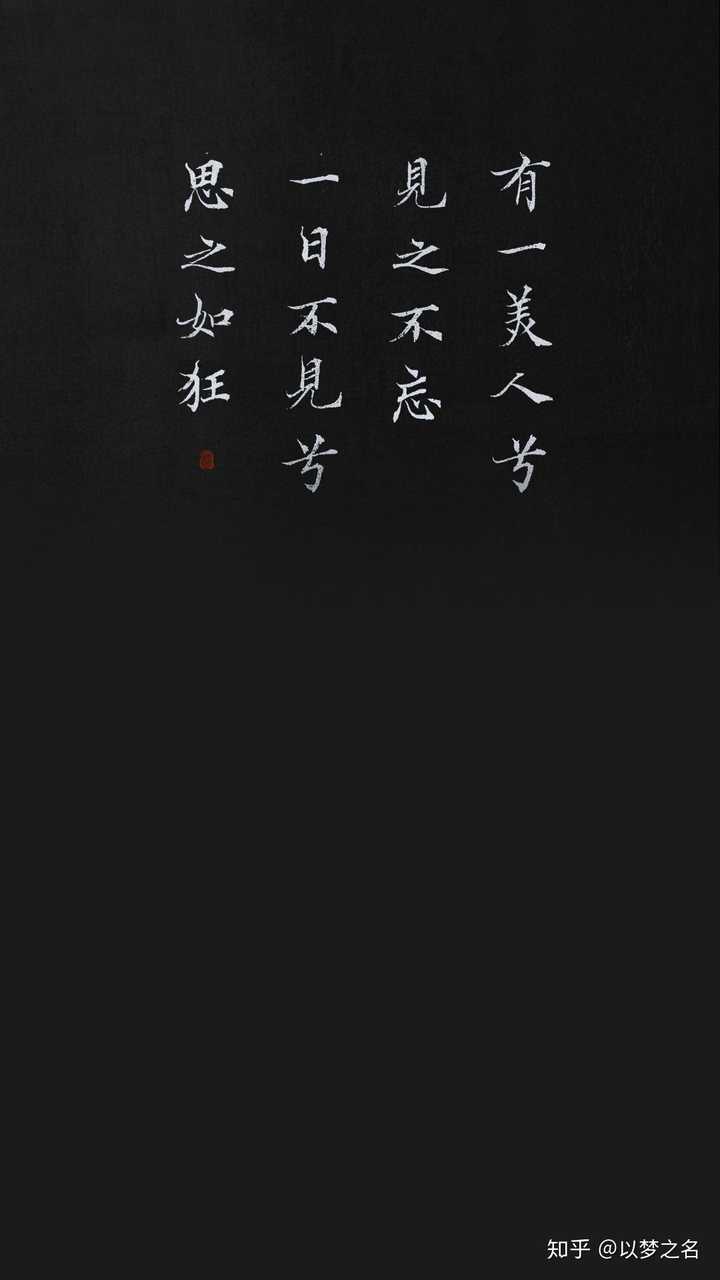 有一美人兮
見之不忘
一日不見兮
思之如狂
知乎 @以梦之名